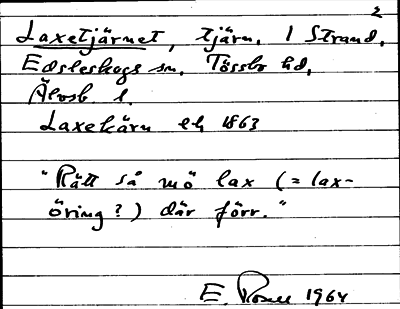 2
Laxetjärnet, tjärn, i Strand,
Edsleskogs sn, Tössbo hd,
Älvsb. l.
Laxekärn ek 1863
"Rätt så mö lax (= lax-
öring?) där förr."
E. 1964